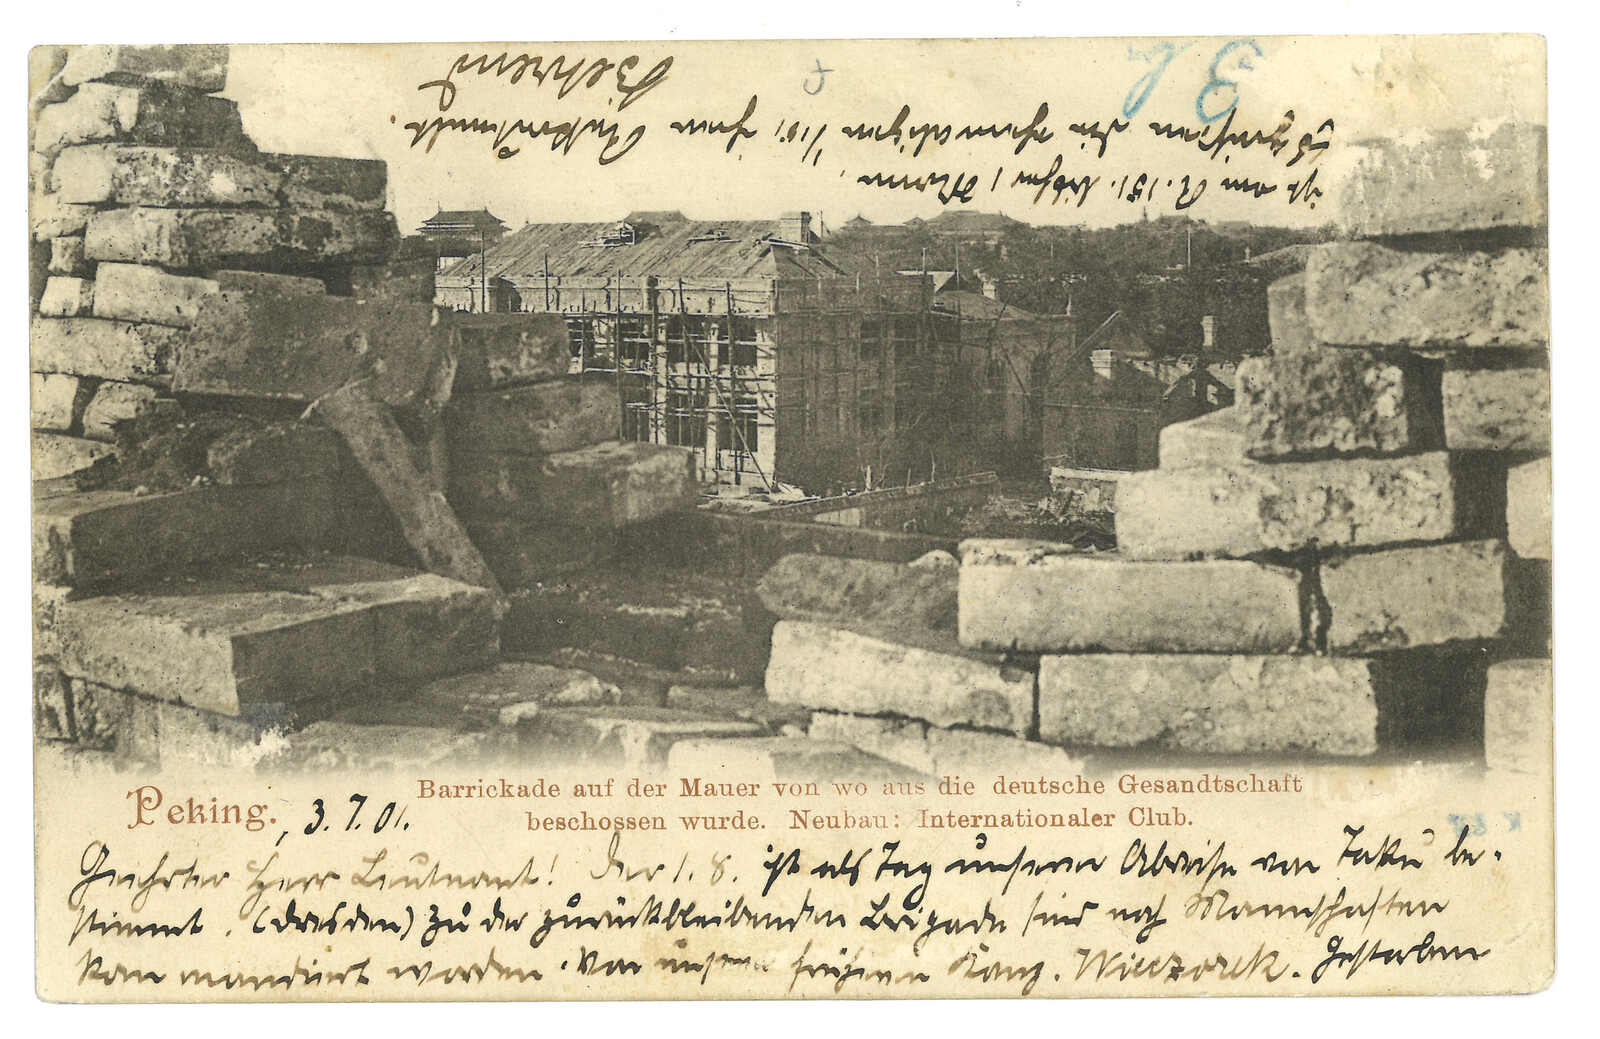 Peking. , 3.7.01.
Barrickade auf der Mauer von wo aus die deutsche Gesandtschaft
beschossen wurde. Neubau: Internationaler Club.
Geehrter Herr Leutnant! Der 1. 8. ist als Tag unserer Abreise von Taku be-
stimmt. (Dresden) Zu der zurückbleibenden Brigade sind noch Mannschaften
kommandiert worden. Von unserer früheren Komp. Wieczorek. Gestorben
ist am
Es grüßen die ehemaligen
Behrend